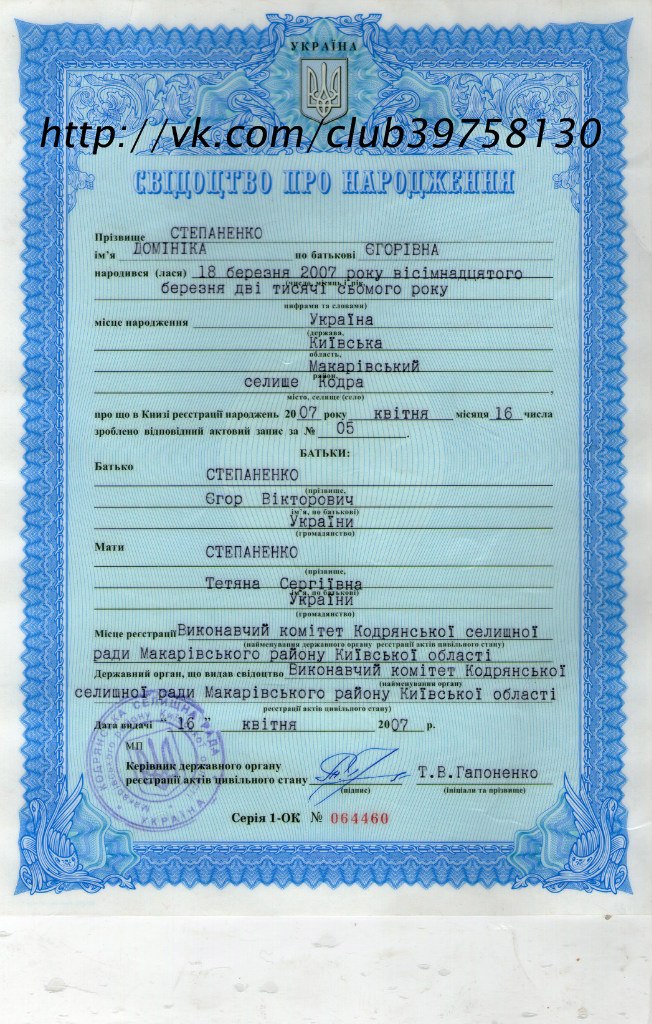 УКРАЇНА
http://vk.com/club39758130
СВІДОЦТВО ПРО НАРОДЖЕННЯ
Прізвище СТЕПАНЕНКО
ім'я ДОМІНІКА по батькові ЄГОРІВНА
народився (лася) 18 березня 2007 року вісімнадцятого
(число, місяць, рік
березня дві тисячі сьомого року
цифрами та словами)
місце народження Україна
(держава,
Київська
область,
Макарівський
район,
селише Кодра
місто, селище (село)
про що в Книзі реєстрації народжень 2007 року квітня місяця 16 числа
зроблено відповідний актовий запис за № 05
БАТЬКИ:
Батько
СТЕПАНЕНКО
(прізвище,
Єгор Вікторович
ім'я, по батькові)
України
(громадянство)
Мати
СТЕПАНЕНКО
(прізвище,
Тетяна Сергіївна
ім'я, по батькові)
України
(громадянство)
Місце реєстрації Виконавчий комітет Кодрянської селишної
(найменування державного органу реєстрації актів цивільного стану)
ради Макарівського району Київської області
Державний орган, що видав свідоцтво Виконавчий комітет Кодрянської
(найменування органу
селишної ради Макарівського району Київської області
реєстрації актів цивільного стану)
Дата видачі "16" квітня 2007 р.
МП
Керівник державного органу
реєстрації актів цивільного стану Т.В.Гапоненко
(підпис) (ініціали та прізвище)
Серія 1-ОК № 064460
КОДРЯНСЬКА СЕЛИЩНА РАДА
УКРАЇНА